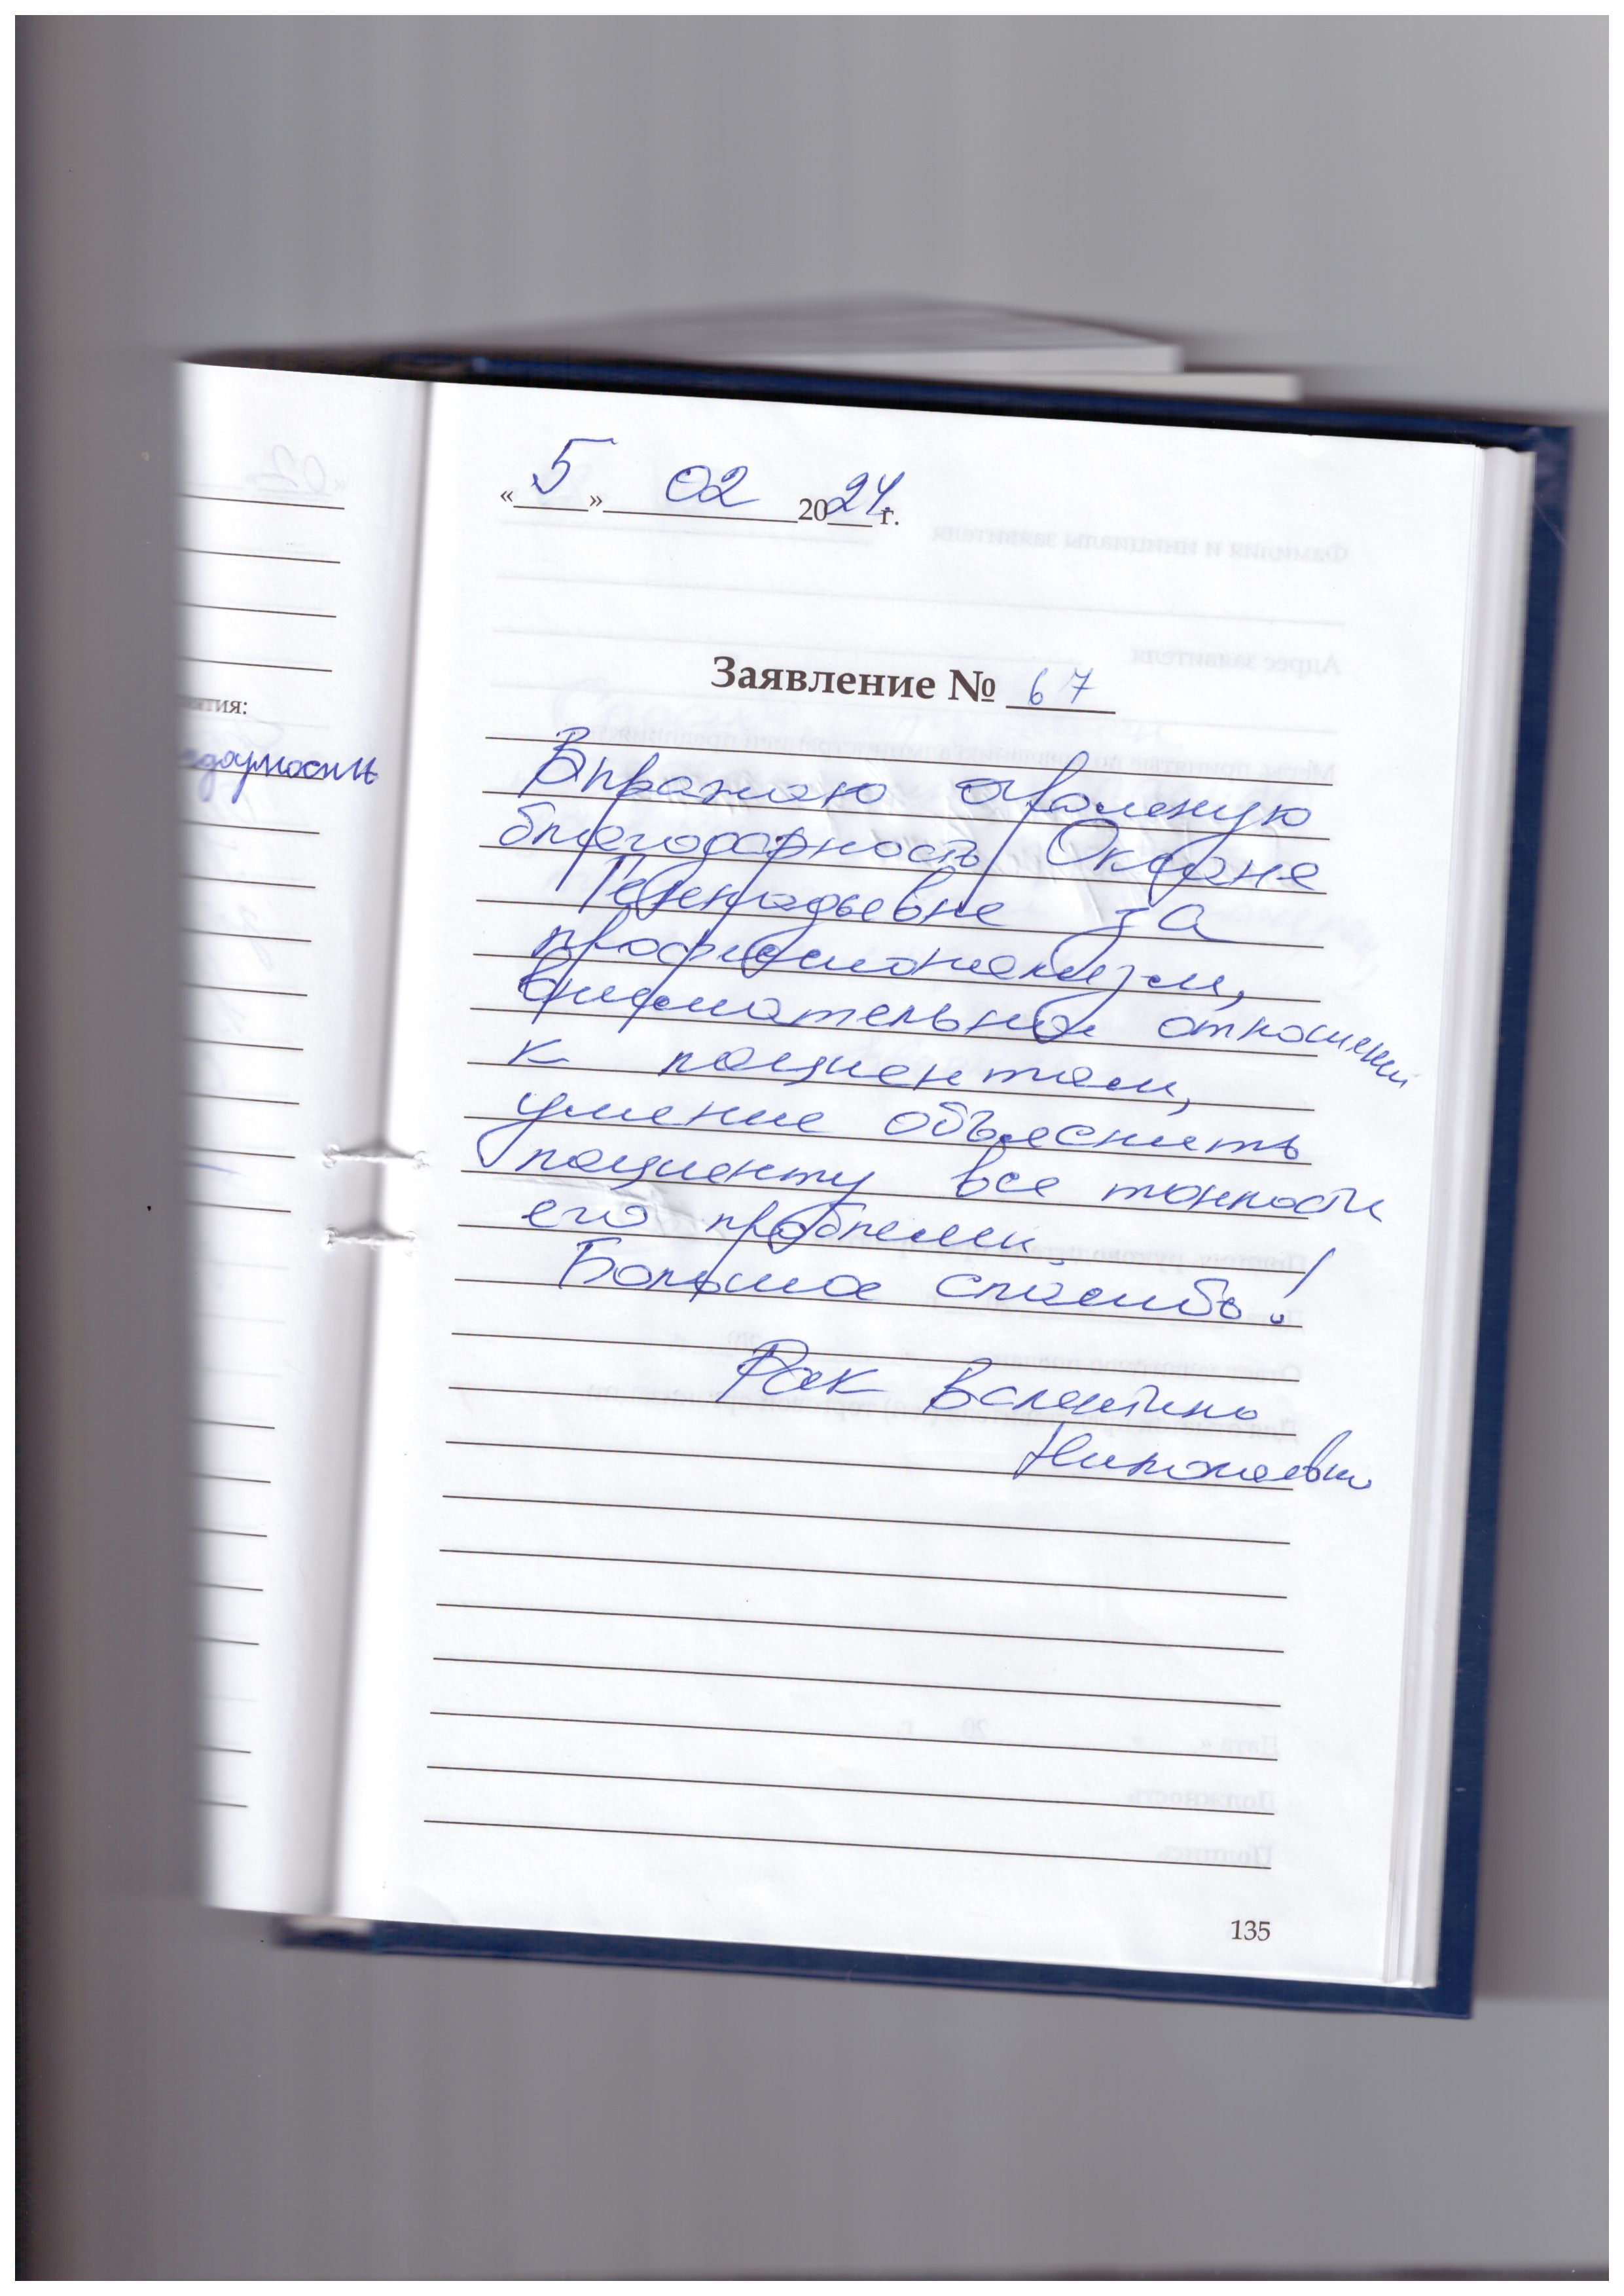 «5» 02 2024 г.
Заявление № 67
Выражаю огромную
благодарность Оксане
Геннадьевне за
профессионализм,
внимательное отношение
к пациентам,
умение объяснить
пациенту все тонкости
его проблемы
Большое спасибо!
Рак Валентина
Николаевна
135
ятия:
одарность